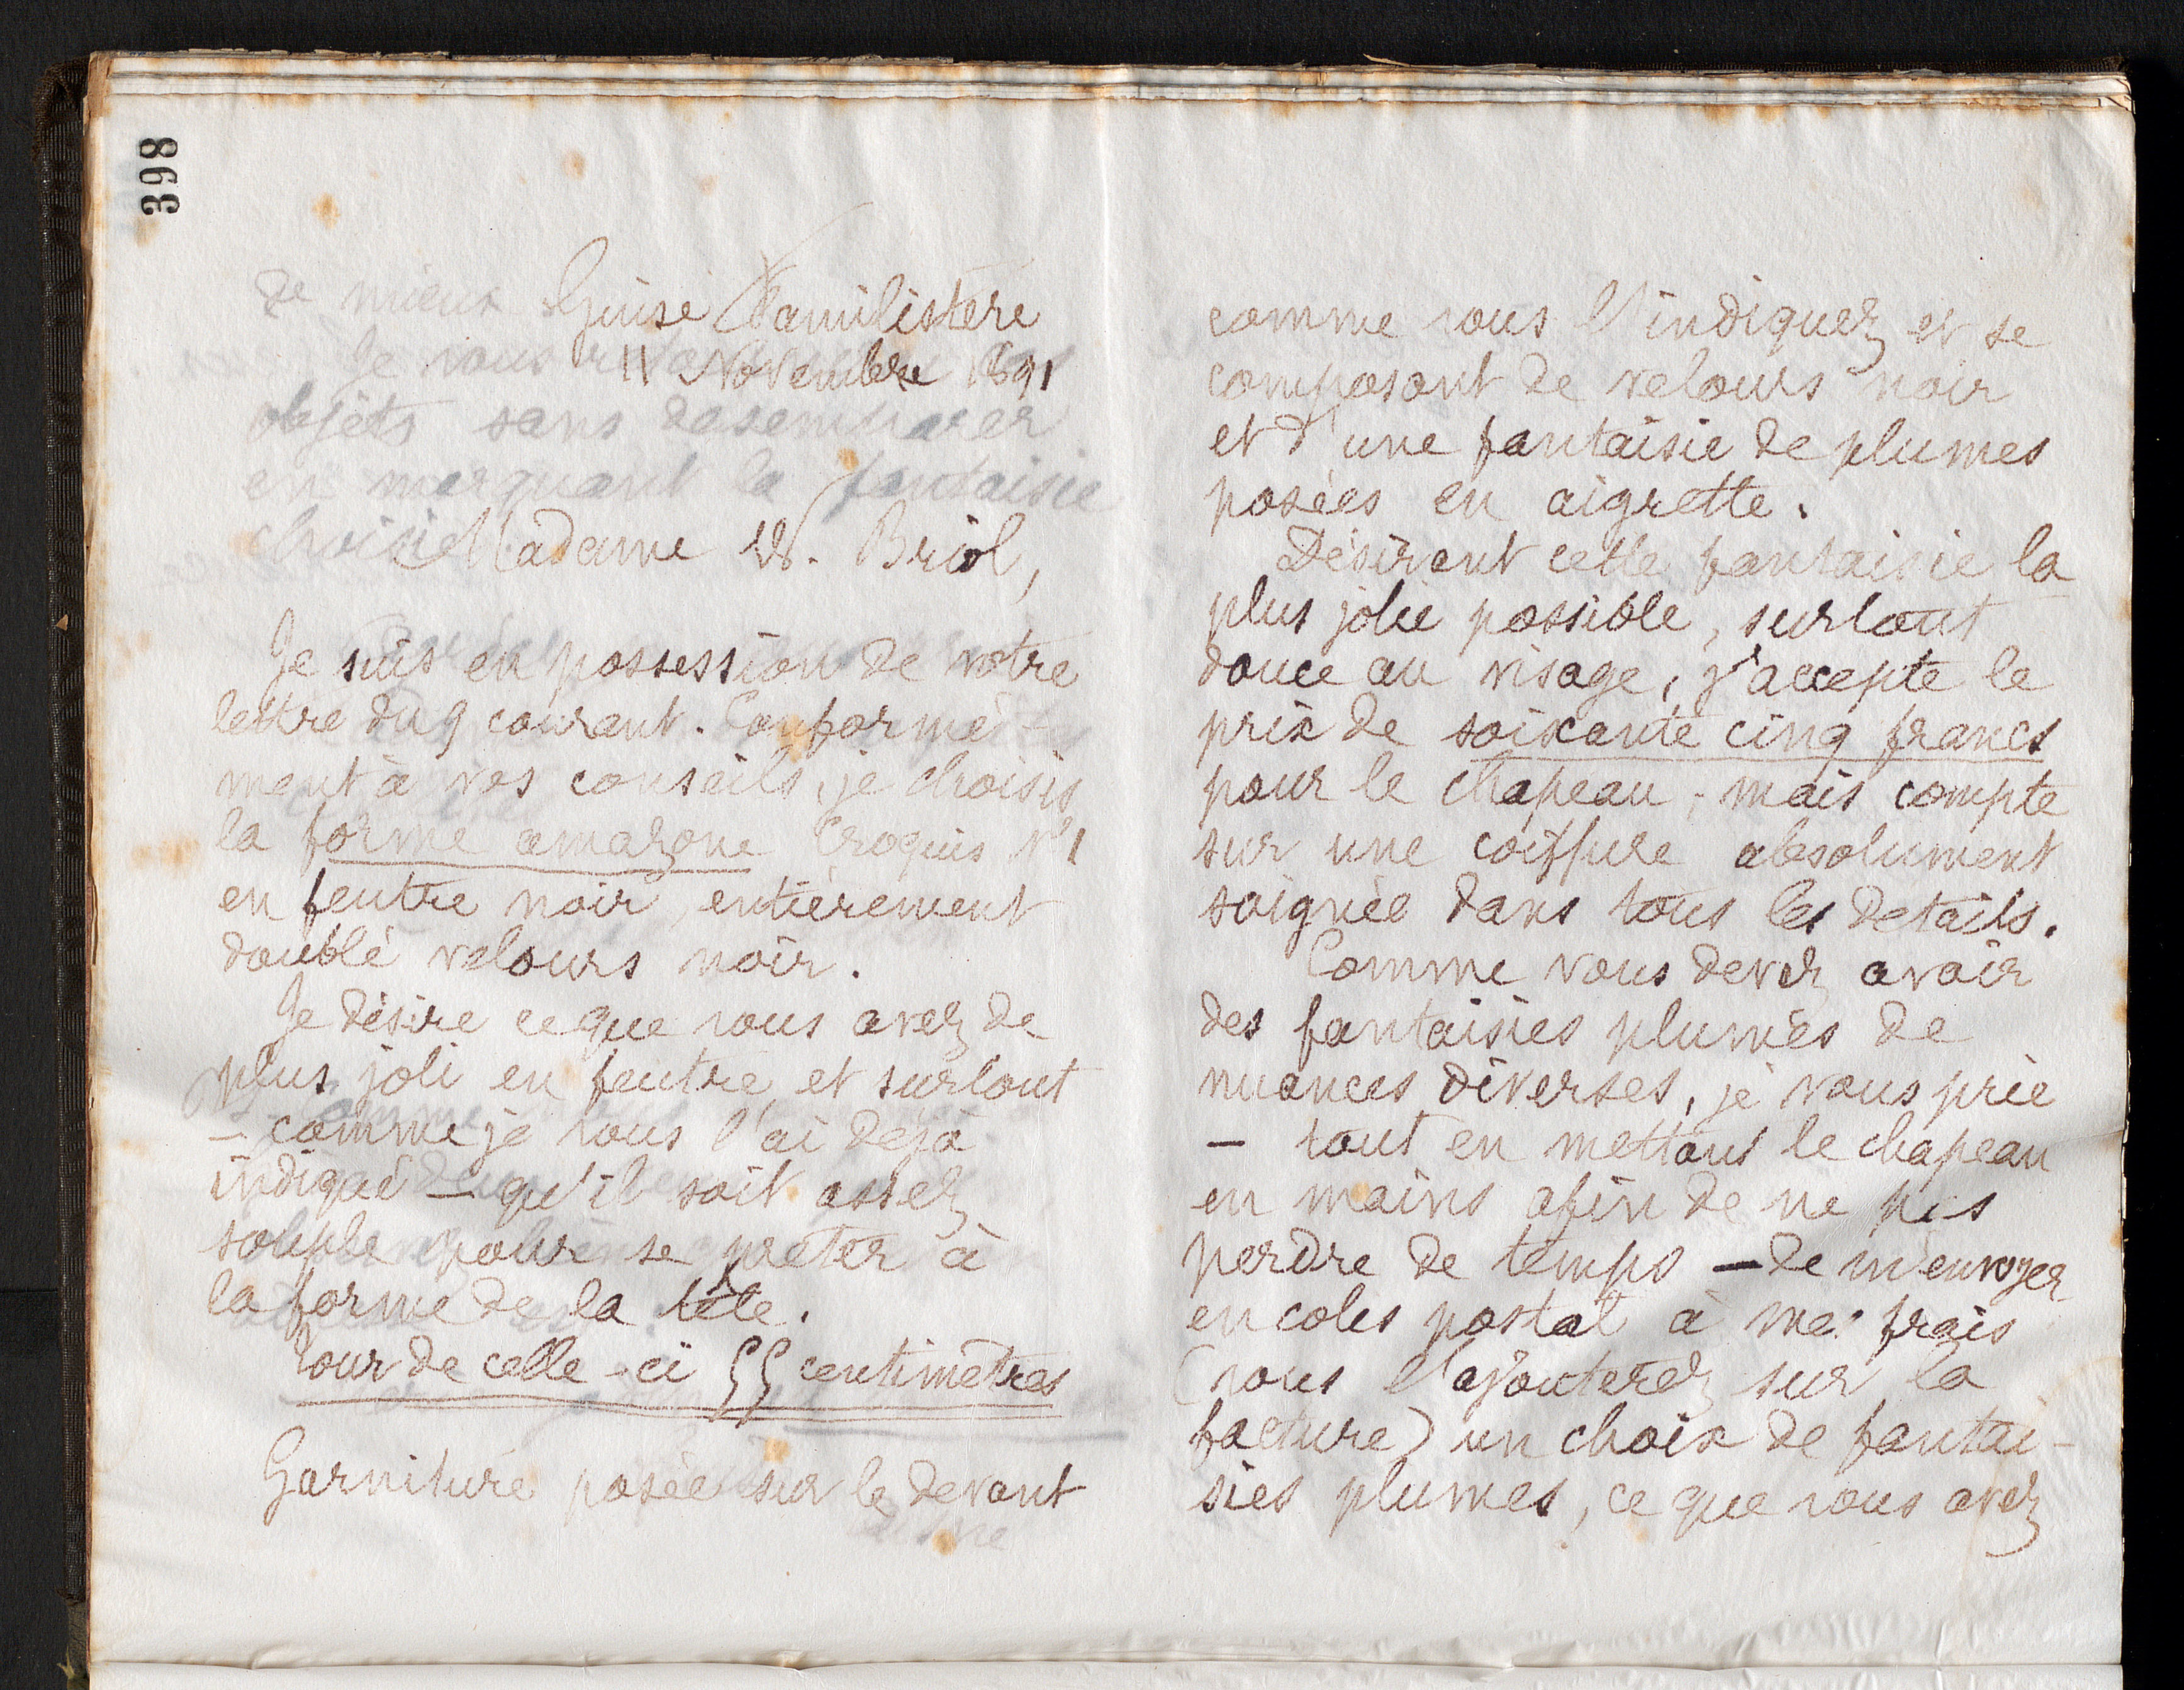 398
Guise Familistère
11 Novembre 1891
Madame W. Briol,
Je suis en possession de votre
lettre du 9 courant. Conformé-
ment à vos conseils, je choisis
la forme amazone Croquis N°1
en feutre noir, entièrement
doublé velours noir.
Je désire ce que vous avez de
plus joli en feutre, et surtout
– comme je vous l'ai déjà
indiqué – qu'il soit assez
souple pour se prêter à
la forme de la tête.
Tour de celle-ci 55 centimètres
Garniture posée sur le devant
comme vous l'indiquez et se
composant de velours noir
et d'une fantaisie de plumes
posées en aigrette.
Désirant cette fantaisie la
plus jolie possible, surtout
douce au visage, j'accepte le
prix de soixante cinq francs
pour le chapeau ; mais compte
sur une coiffure absolument
soignée dans tous les détails.
Comme vous devez avoir
des fantaisies plumes de
nuances diverses, je vous prie
– tout en mettant le chapeau
en mains afin de ne pas
perdre de temps – de m'envoyer
en colis postal à mes frais
(vous l'ajouterez sur la
facture) un choix de fantai-
sies plumes, ce que vous avez